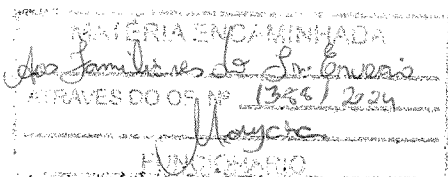 MATÉRIA ENCAMINHADA
Aos Familiares do Sr.
ATRAVÉS DO OF. Nº 1388/2024
FUNCIONÁRIO